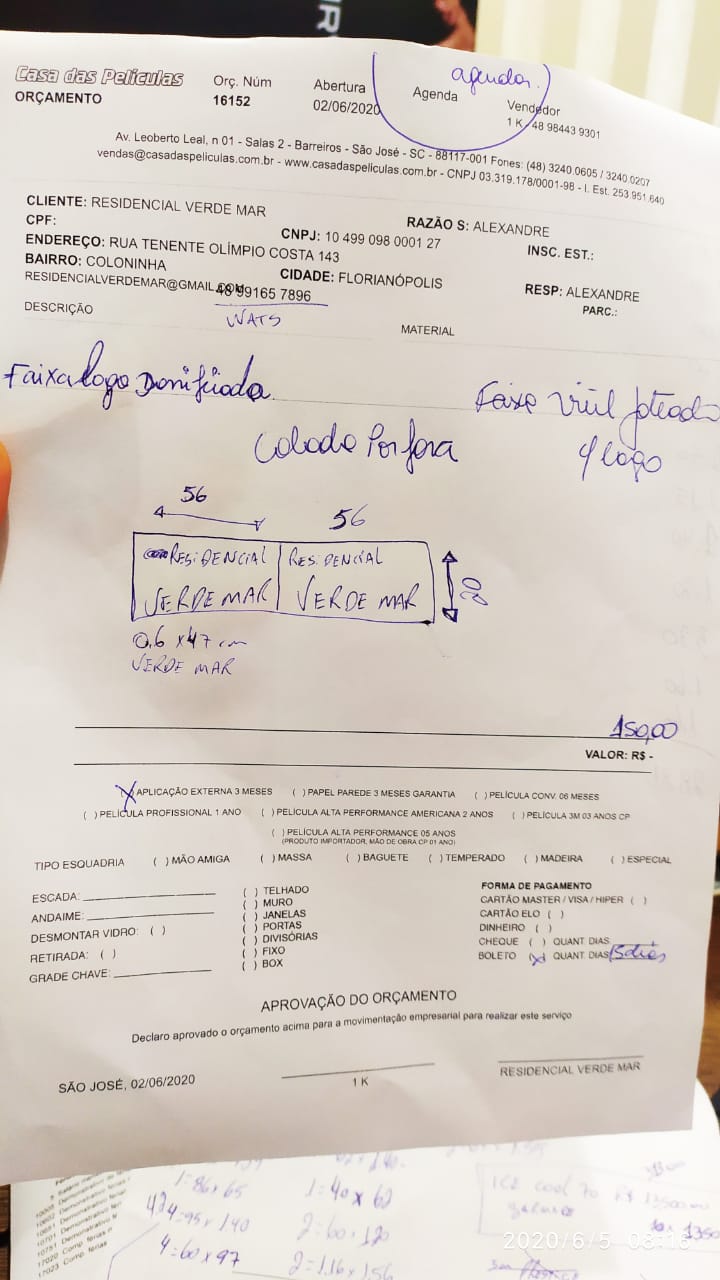 Casa das Películas
ORÇAMENTO
Orç. Núm
16152
Abertura
02/06/2020
Agenda
agendar.
Vendedor
1 K - 48 98443 9301
Av. Leoberto Leal, n 01 - Salas 2 - Barreiros - São José - SC - 88117-001 Fones: (48) 3240.0605 / 3240.0207
vendas@casadaspeliculas.com.br - www.casadaspeliculas.com.br - CNPJ 03.319.178/0001-98 - I. Est. 253.951.640
CLIENTE: RESIDENCIAL VERDE MAR
RAZÃO S: ALEXANDRE
CPF:
CNPJ: 10 499 098 0001 27
INSC. EST.:
ENDEREÇO: RUA TENENTE OLÍMPIO COSTA 143
BAIRRO: COLONINHA
CIDADE: FLORIANÓPOLIS
RESP: ALEXANDRE
RESIDENCIALVERDEMAR@GMAIL.COM
48 99165 7896
PARC.:
WATS
DESCRIÇÃO
MATERIAL
Faixa logo
Faixa
logo
Colado Por fora
56
56
RESIDENCIAL
RESIDENCIAL
VERDE MAR
VERDE MAR
20
0,6 x 47 cm
VERDE MAR
150,00
VALOR: R$ -
X APLICAÇÃO EXTERNA 3 MESES ( ) PAPEL PAREDE 3 MESES GARANTIA ( ) PELÍCULA CONV. 06 MESES
( ) PELÍCULA PROFISSIONAL 1 ANO ( ) PELÍCULA ALTA PERFORMANCE AMERICANA 2 ANOS ( ) PELÍCULA 3M 03 ANOS CP
( ) PELÍCULA ALTA PERFORMANCE 05 ANOS
(PRODUTO IMPORTADOR, MÃO DE OBRA CP 01 ANO)
TIPO ESQUADRIA ( ) MÃO AMIGA ( ) MASSA ( ) BAGUETE ( ) TEMPERADO ( ) MADEIRA ( ) ESPECIAL
ESCADA:
ANDAIME:
DESMONTAR VIDRO: ( )
RETIRADA: ( )
GRADE CHAVE:
( ) TELHADO
( ) MURO
( ) JANELAS
( ) PORTAS
( ) DIVISÓRIAS
( ) FIXO
( ) BOX
FORMA DE PAGAMENTO
CARTÃO MASTER / VISA / HIPER ( )
CARTÃO ELO ( )
DINHEIRO ( )
CHEQUE ( ) QUANT. DIAS
BOLETO (x) QUANT. DIAS 15 dias
APROVAÇÃO DO ORÇAMENTO
Declaro aprovado o orçamento acima para a movimentação empresarial para realizar este serviço
SÃO JOSÉ, 02/06/2020
1 K
RESIDENCIAL VERDE MAR
1=86x65
1=40x62
2=60x120
4=60x97
2=1,16x1,56
2020/6/5 08:16